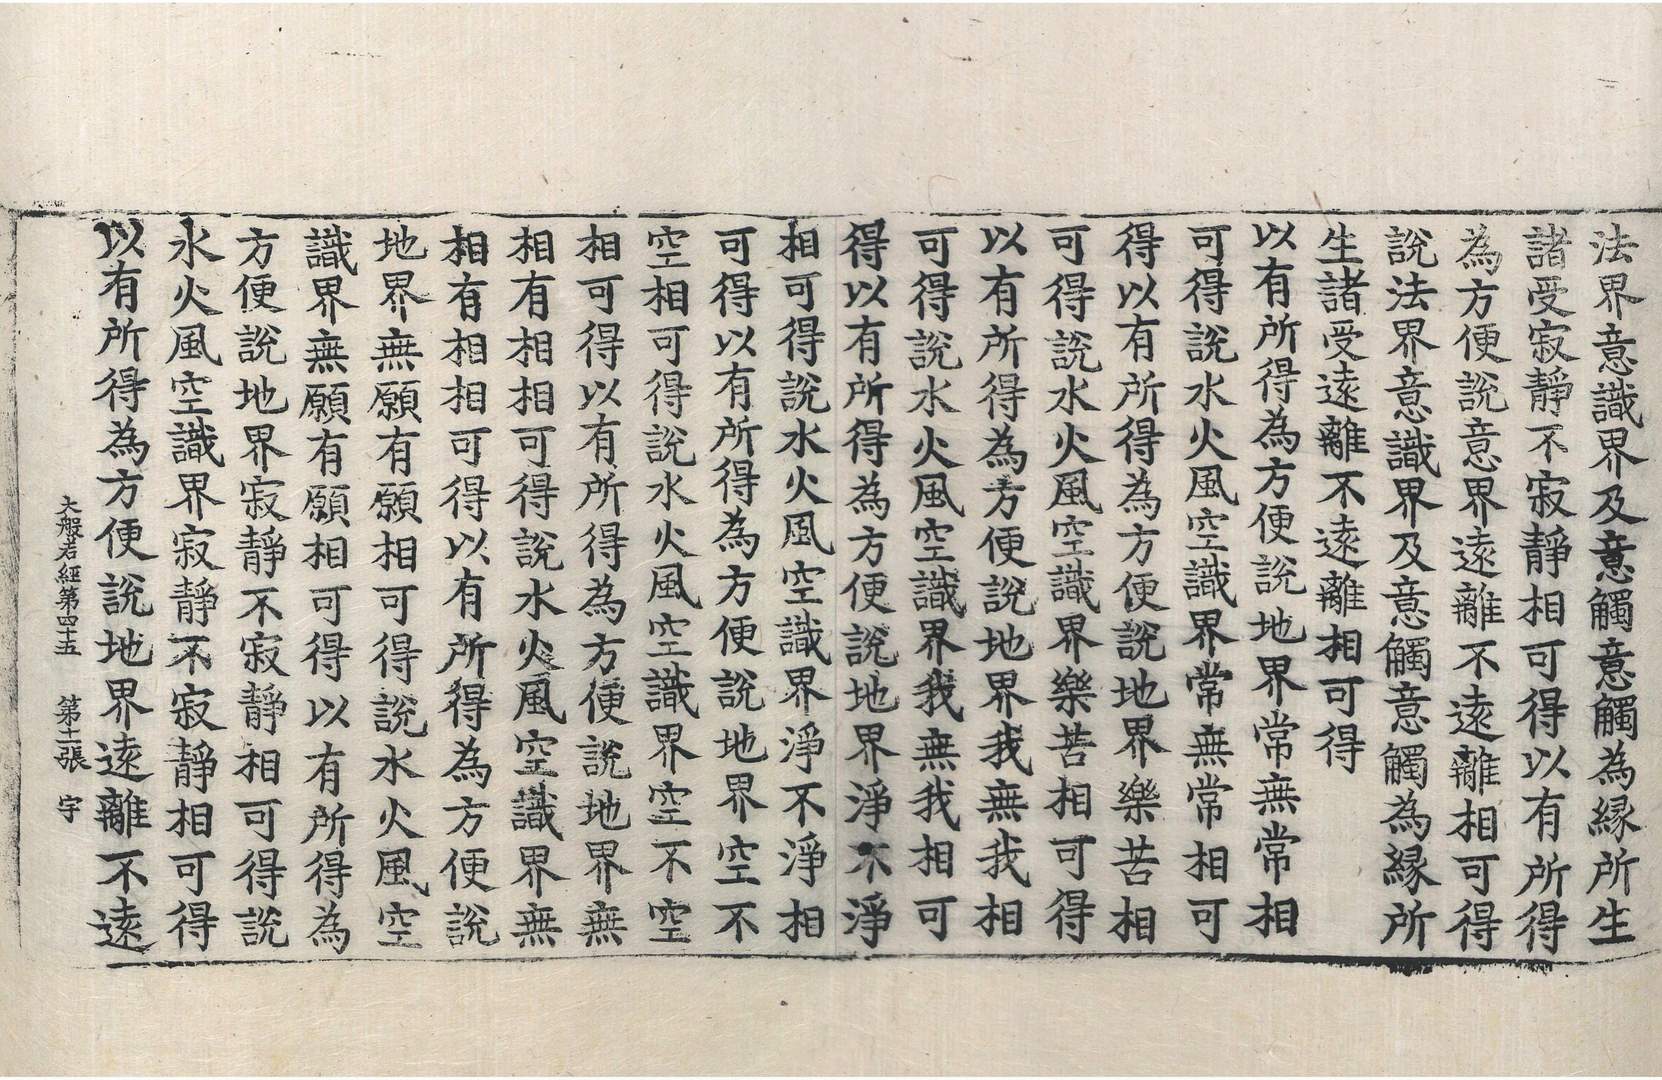 法界意識界及意觸意觸為緣所生
諸受寂靜不寂靜相可得以有所得
為方便說意界遠離不遠離相可得
說法界意識界及意觸意觸為緣所
生諸受遠離不遠離相可得
以有所得為方便說地界常無常相
可得說水火風空識界常無常相可
得以有所得為方便說地界樂苦相
可得說水火風空識界樂苦相可得
以有所得為方便說地界我無我相
可得說水火風空識界我無我相可
得以有所得為方便說地界淨不淨
相可得說水火風空識界淨不淨相
可得以有所得為方便說地界空不
空相可得說水火風空識界空不空
相可得以有所得為方便說地界無
相有相相可得說水火風空識界無
相有相相可得以有所得為方便說
地界無願有願相可得說水火風空
識界無願有願相可得以有所得為
方便說地界寂靜不寂靜相可得說
水火風空識界寂靜不寂靜相可得
以有所得為方便說地界遠離不遠
大般若經第四十五 第十二張 宇